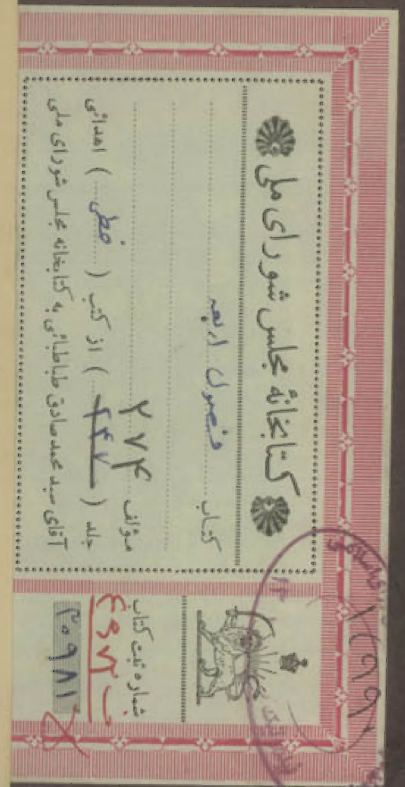 کتابخانهٔ مجلس شورای ملی
کتاب فصول اربعه
مؤلف ۲۷۴
جلد (۲۴۷) از کتب (خطی) اهدائی
آقای سید محمد صادق طباطبائی به کتابخانه مجلس شورای ملی
شماره ثبت کتاب
۳۰۹۸۱